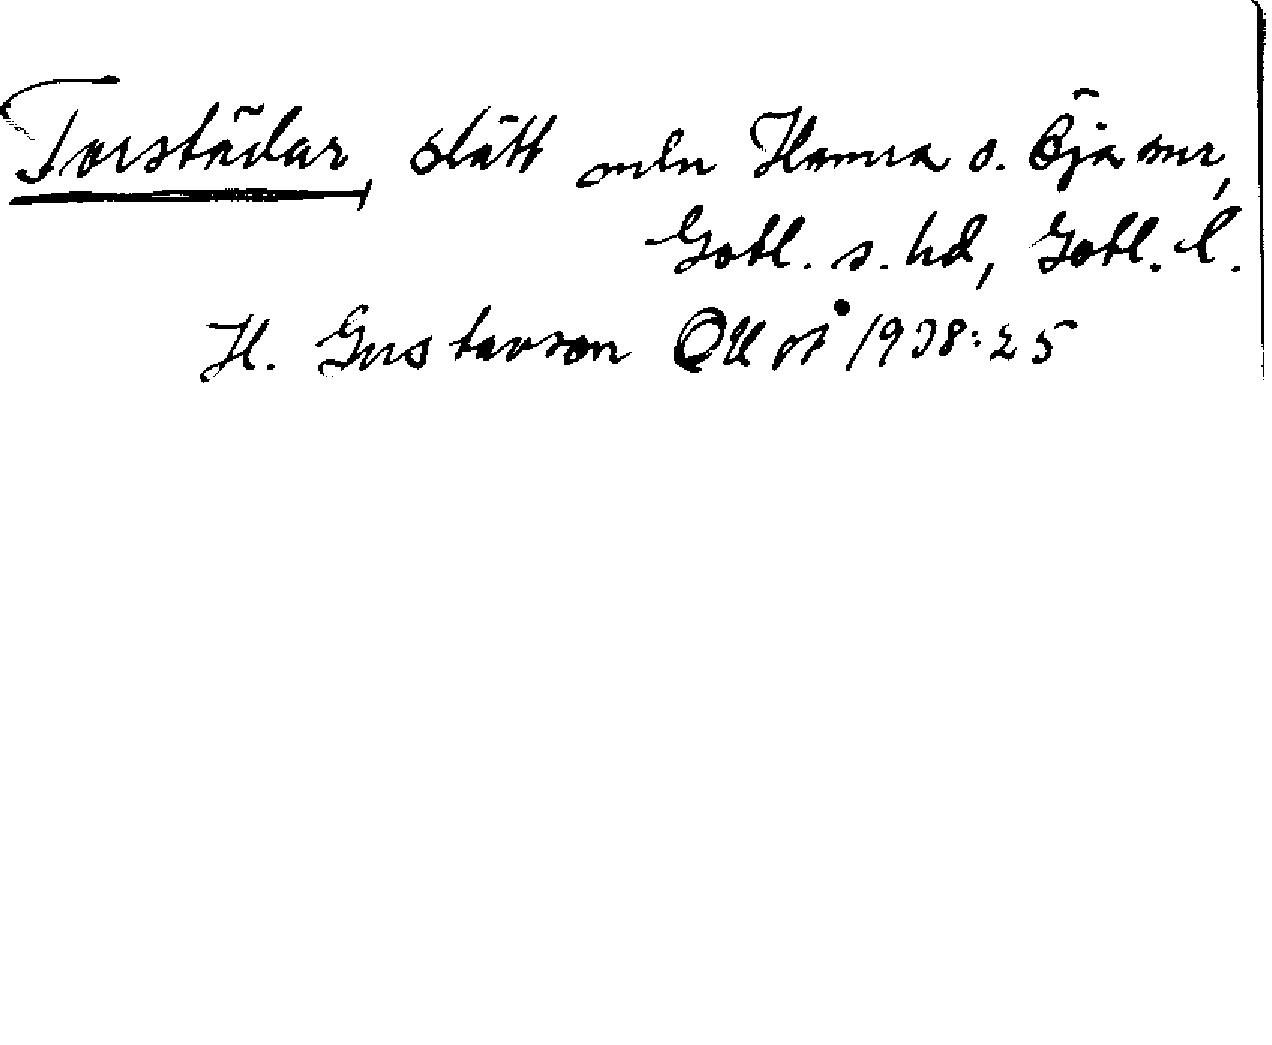 Torstädar, slätt mln Hamra o. Öja snr,
Gotl. s. hd, Gotl. l.
H. Gustavson OUÅ 1938:25